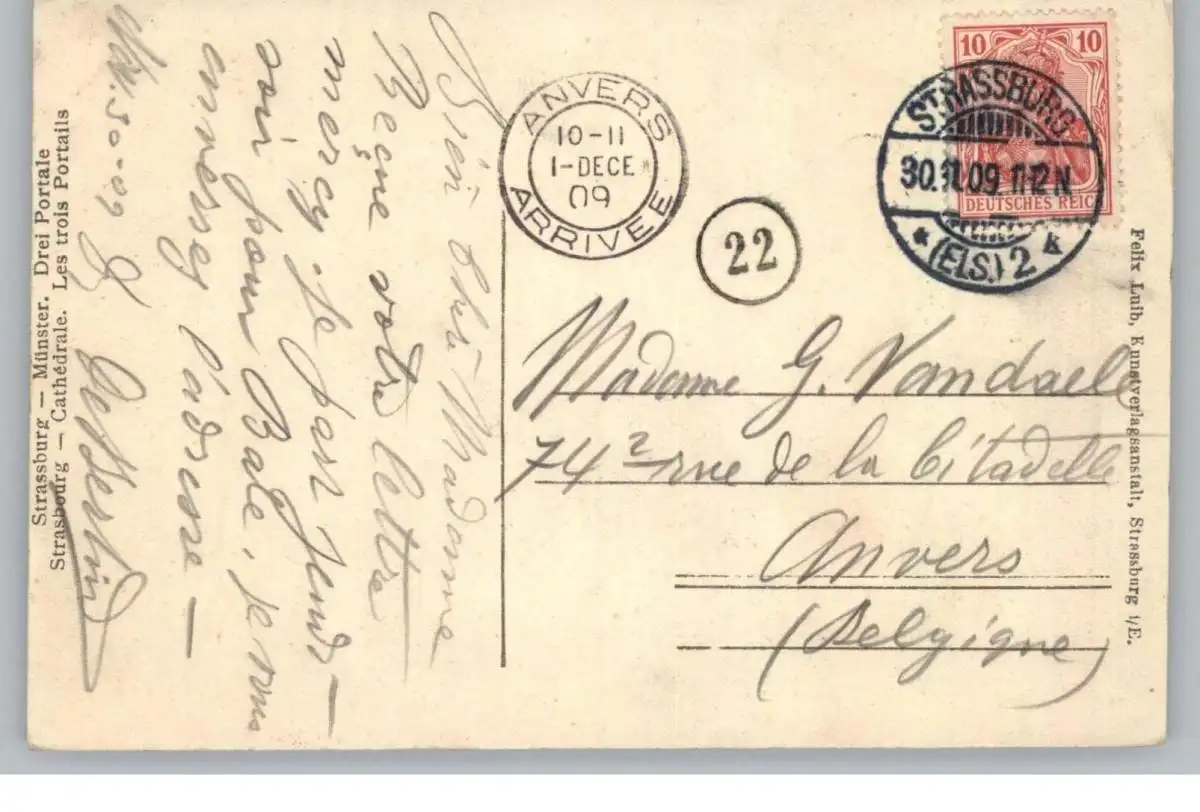 Strassburg — Münster. Drei Portale
Strasbourg — Cathédrale. Les trois Portails
Madame
Reçue votre lettre
mercy. Je pars Jeudi —
soir pour Bale, je vous
l'adresse —
30-09
ANVERS
10-11
1-DECE
09
ARRIVEE
22
10 10
DEUTSCHES REICH
STRASSBURG
30.11.09 11-12 N.
* (ELS.) 2 k
Madame G. Vandaele
74² rue de la Citadelle
Anvers
(Belgique)
Felix Luib, Kunstverlagsanstalt, Strassburg i/E.